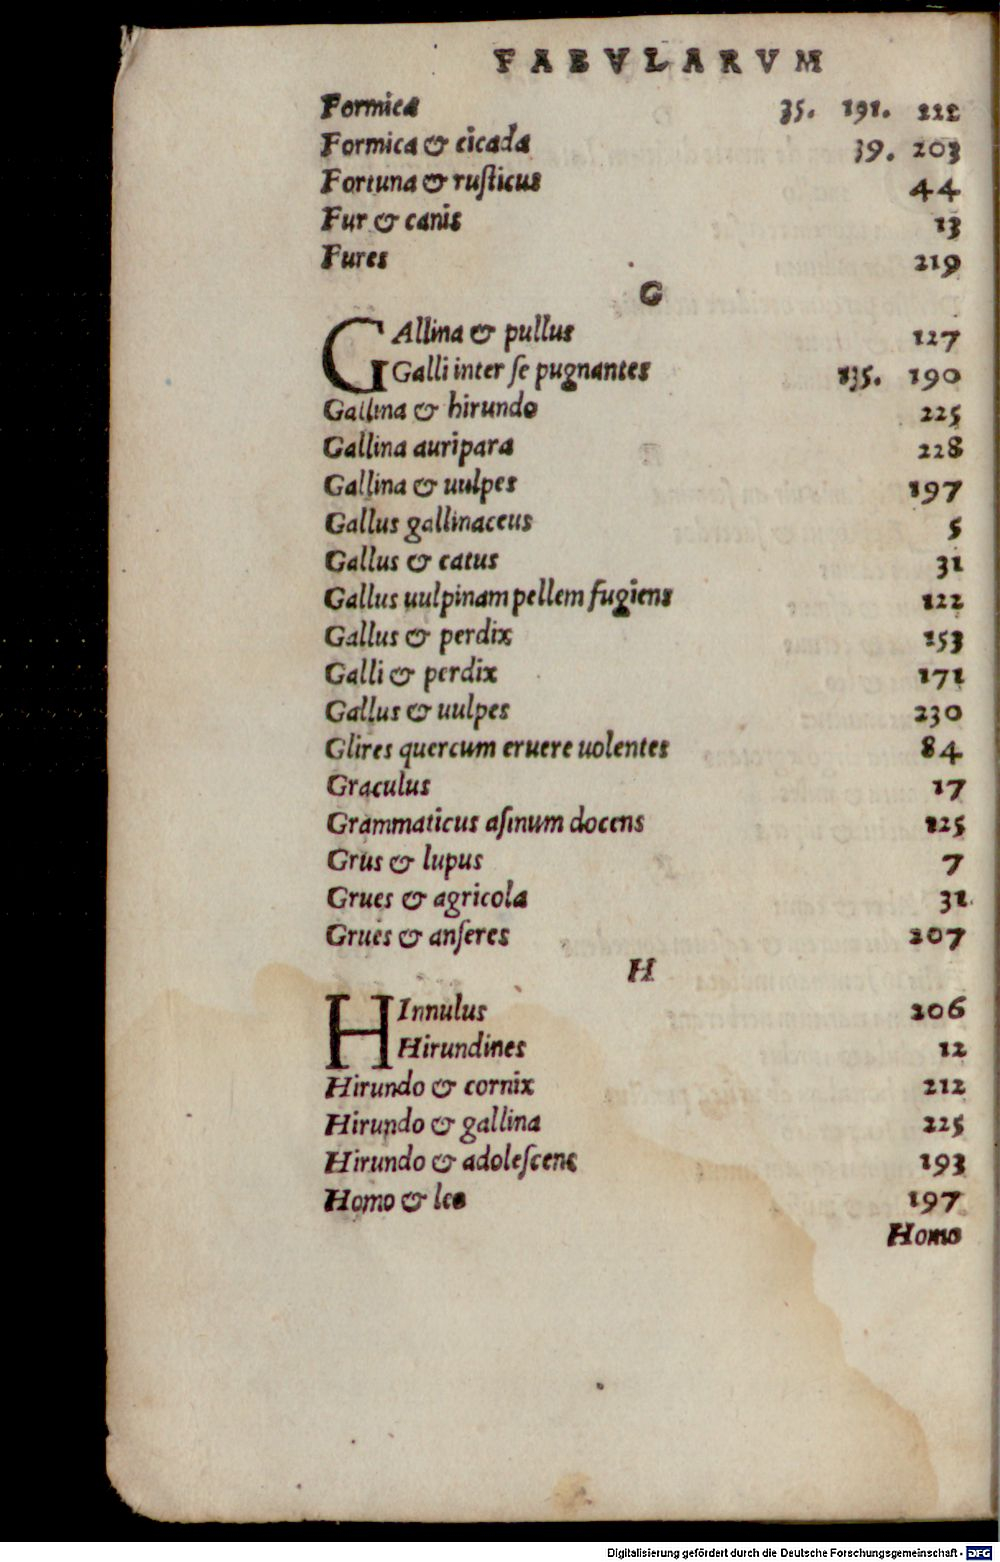 FABVLARVM
Formica 35. 191. 222
Formica & cicada 39. 203
Fortuna & ruſticus 44
Fur & canis 13
Fures 219
G
GAllina & pullus 127
Galli inter ſe pugnantes 135. 190
Gallina & hirundo 225
Gallina auripara 228
Gallina & uulpes 197
Gallus gallinaceus 5
Gallus & catus 31
Gallus uulpinam pellem fugiens 122
Gallus & perdix 153
Galli & perdix 171
Gallus & uulpes 230
Glires quercum eruere uolentes 84
Graculus 17
Grammaticus aſinum docens 125
Grus & lupus 7
Grues & agricola 31
Grues & anſeres 207
H
HInnulus 206
Hirundines 12
Hirundo & cornix 212
Hirundo & gallina 225
Hirundo & adoleſcens 193
Homo & leo 197
Homo
Digitalisierung gefördert durch die Deutsche Forschungsgemeinschaft - DFG